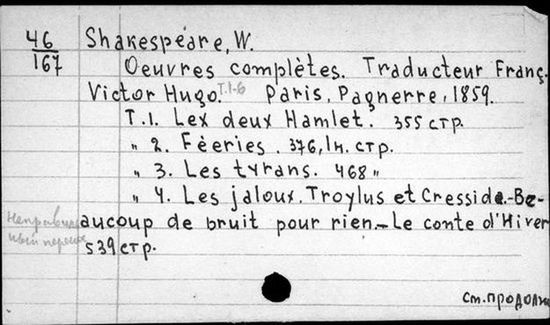 46
167
Shakespeare, W.
Oeuvres complètes. Traducteur Franç.
Victor Hugo. T.1-6 Paris, Pagnerre, 1859.
T.1. Lex deux Hamlet. 355 стр.
" 2. Féeries. 376, 1н. стр.
" 3. Les tyrans. 468 "
" 4. Les jaloux. Troylus et Cressida.-Be-
aucoup de bruit pour rien.-Le conte d'Hiver
539 стр.
см. продолж